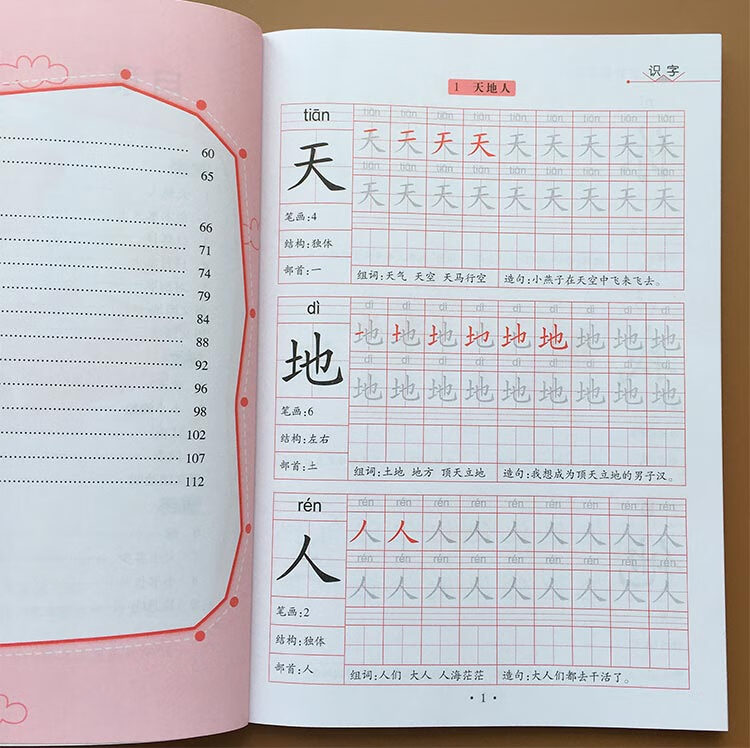 60
65
66
71
74
79
84
88
92
96
98
102
107
112
识字
1 天地人
tiān
天
笔画:4
结构:独体
部首:一
tiān tiān tiān tiān tiān tiān tiān tiān tiān
天 天 天 天 天 天 天 天 天
tiān tiān tiān tiān tiān tiān tiān tiān tiān
天 天 天 天 天 天 天 天 天
组词:天气 天空 天马行空 造句:小燕子在天空中飞来飞去。
dì
地
笔画:6
结构:左右
部首:土
dì dì dì dì dì dì dì dì dì
地 地 地 地 地 地 地 地 地
dì dì dì dì dì dì dì dì dì
地 地 地 地 地 地 地 地 地
组词:土地 地方 顶天立地 造句:我想成为顶天立地的男子汉。
rén
人
笔画:2
结构:独体
部首:人
rén rén rén rén rén rén rén rén rén
人 人 人 人 人 人 人 人 人
rén rén rén rén rén rén rén rén rén
人 人 人 人 人 人 人 人 人
组词:人们 大人 人海茫茫 造句:大人们都去干活了。
·1·